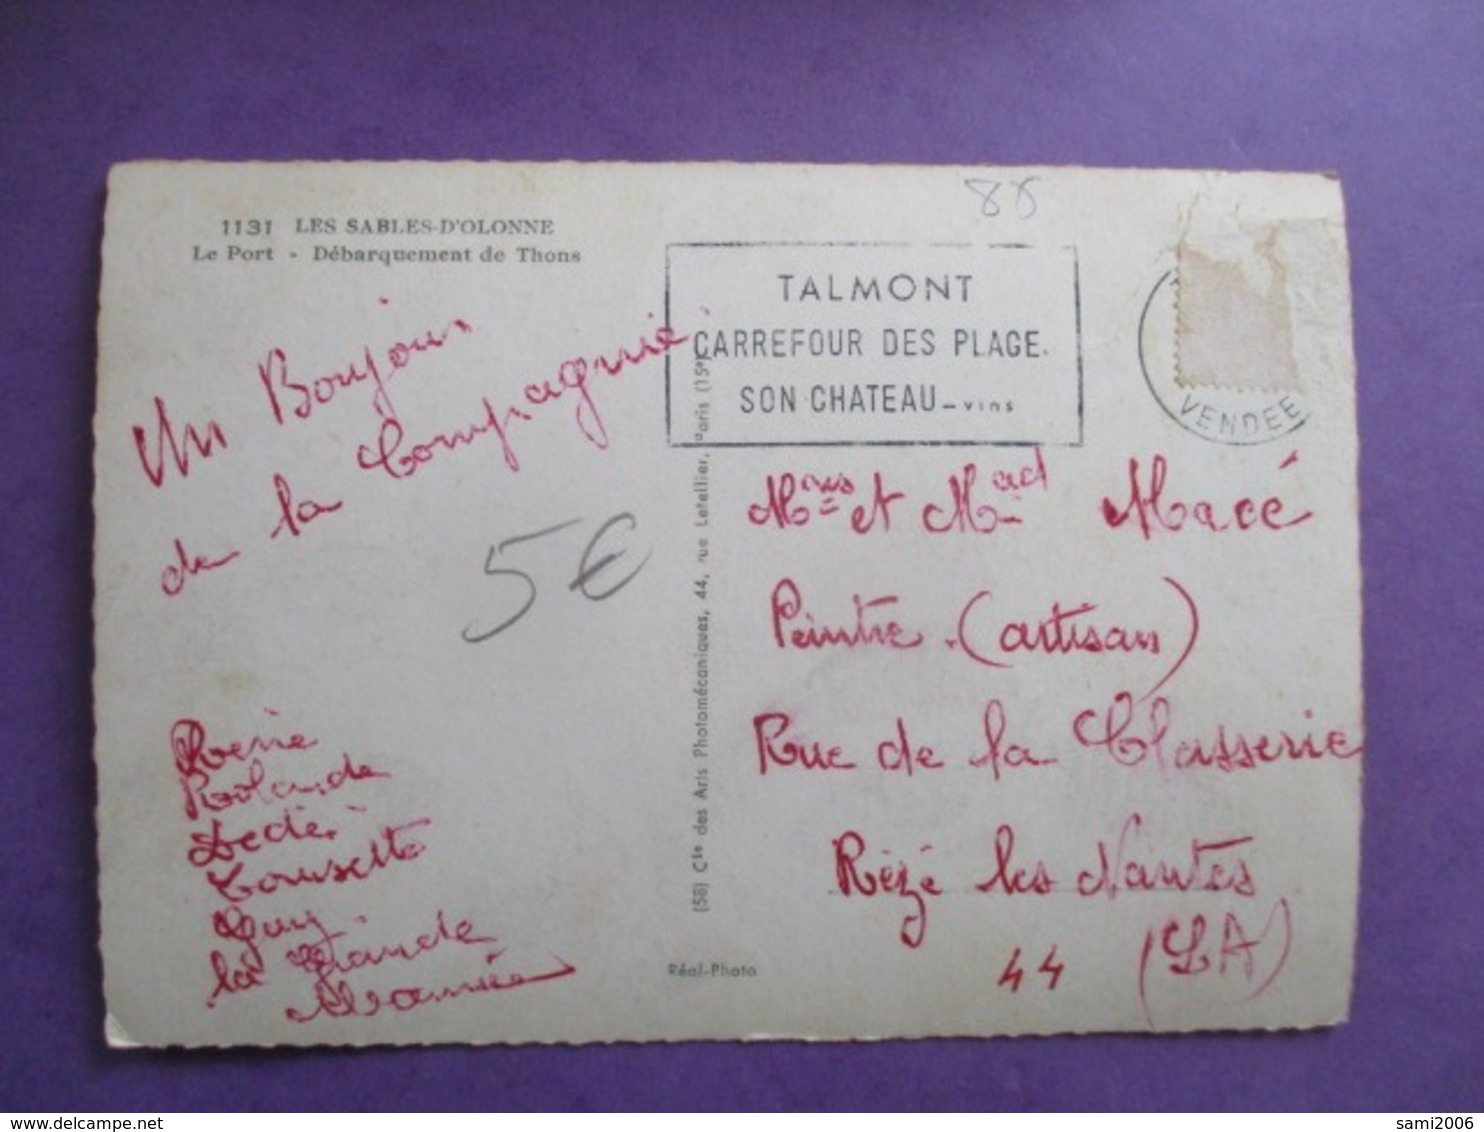 88
1131 LES SABLES-D'OLONNE
Le Port - Débarquement de Thons
TALMONT
CARREFOUR DES PLAGE.
SON CHATEAU - vins
VENDEE
Un Bonjour
de la Compagnie
5€
Mons et Mad Macé
Peintre (artisan)
Rue de la Classerie
Rézé les Nantes
44 (LA)
Rolande
Dédé
Guy
la Grande
Mamie
(58) Cie des Arts Photomécaniques, 44, rue Letellier, Paris (15e)
Réal-Photo
sami2006